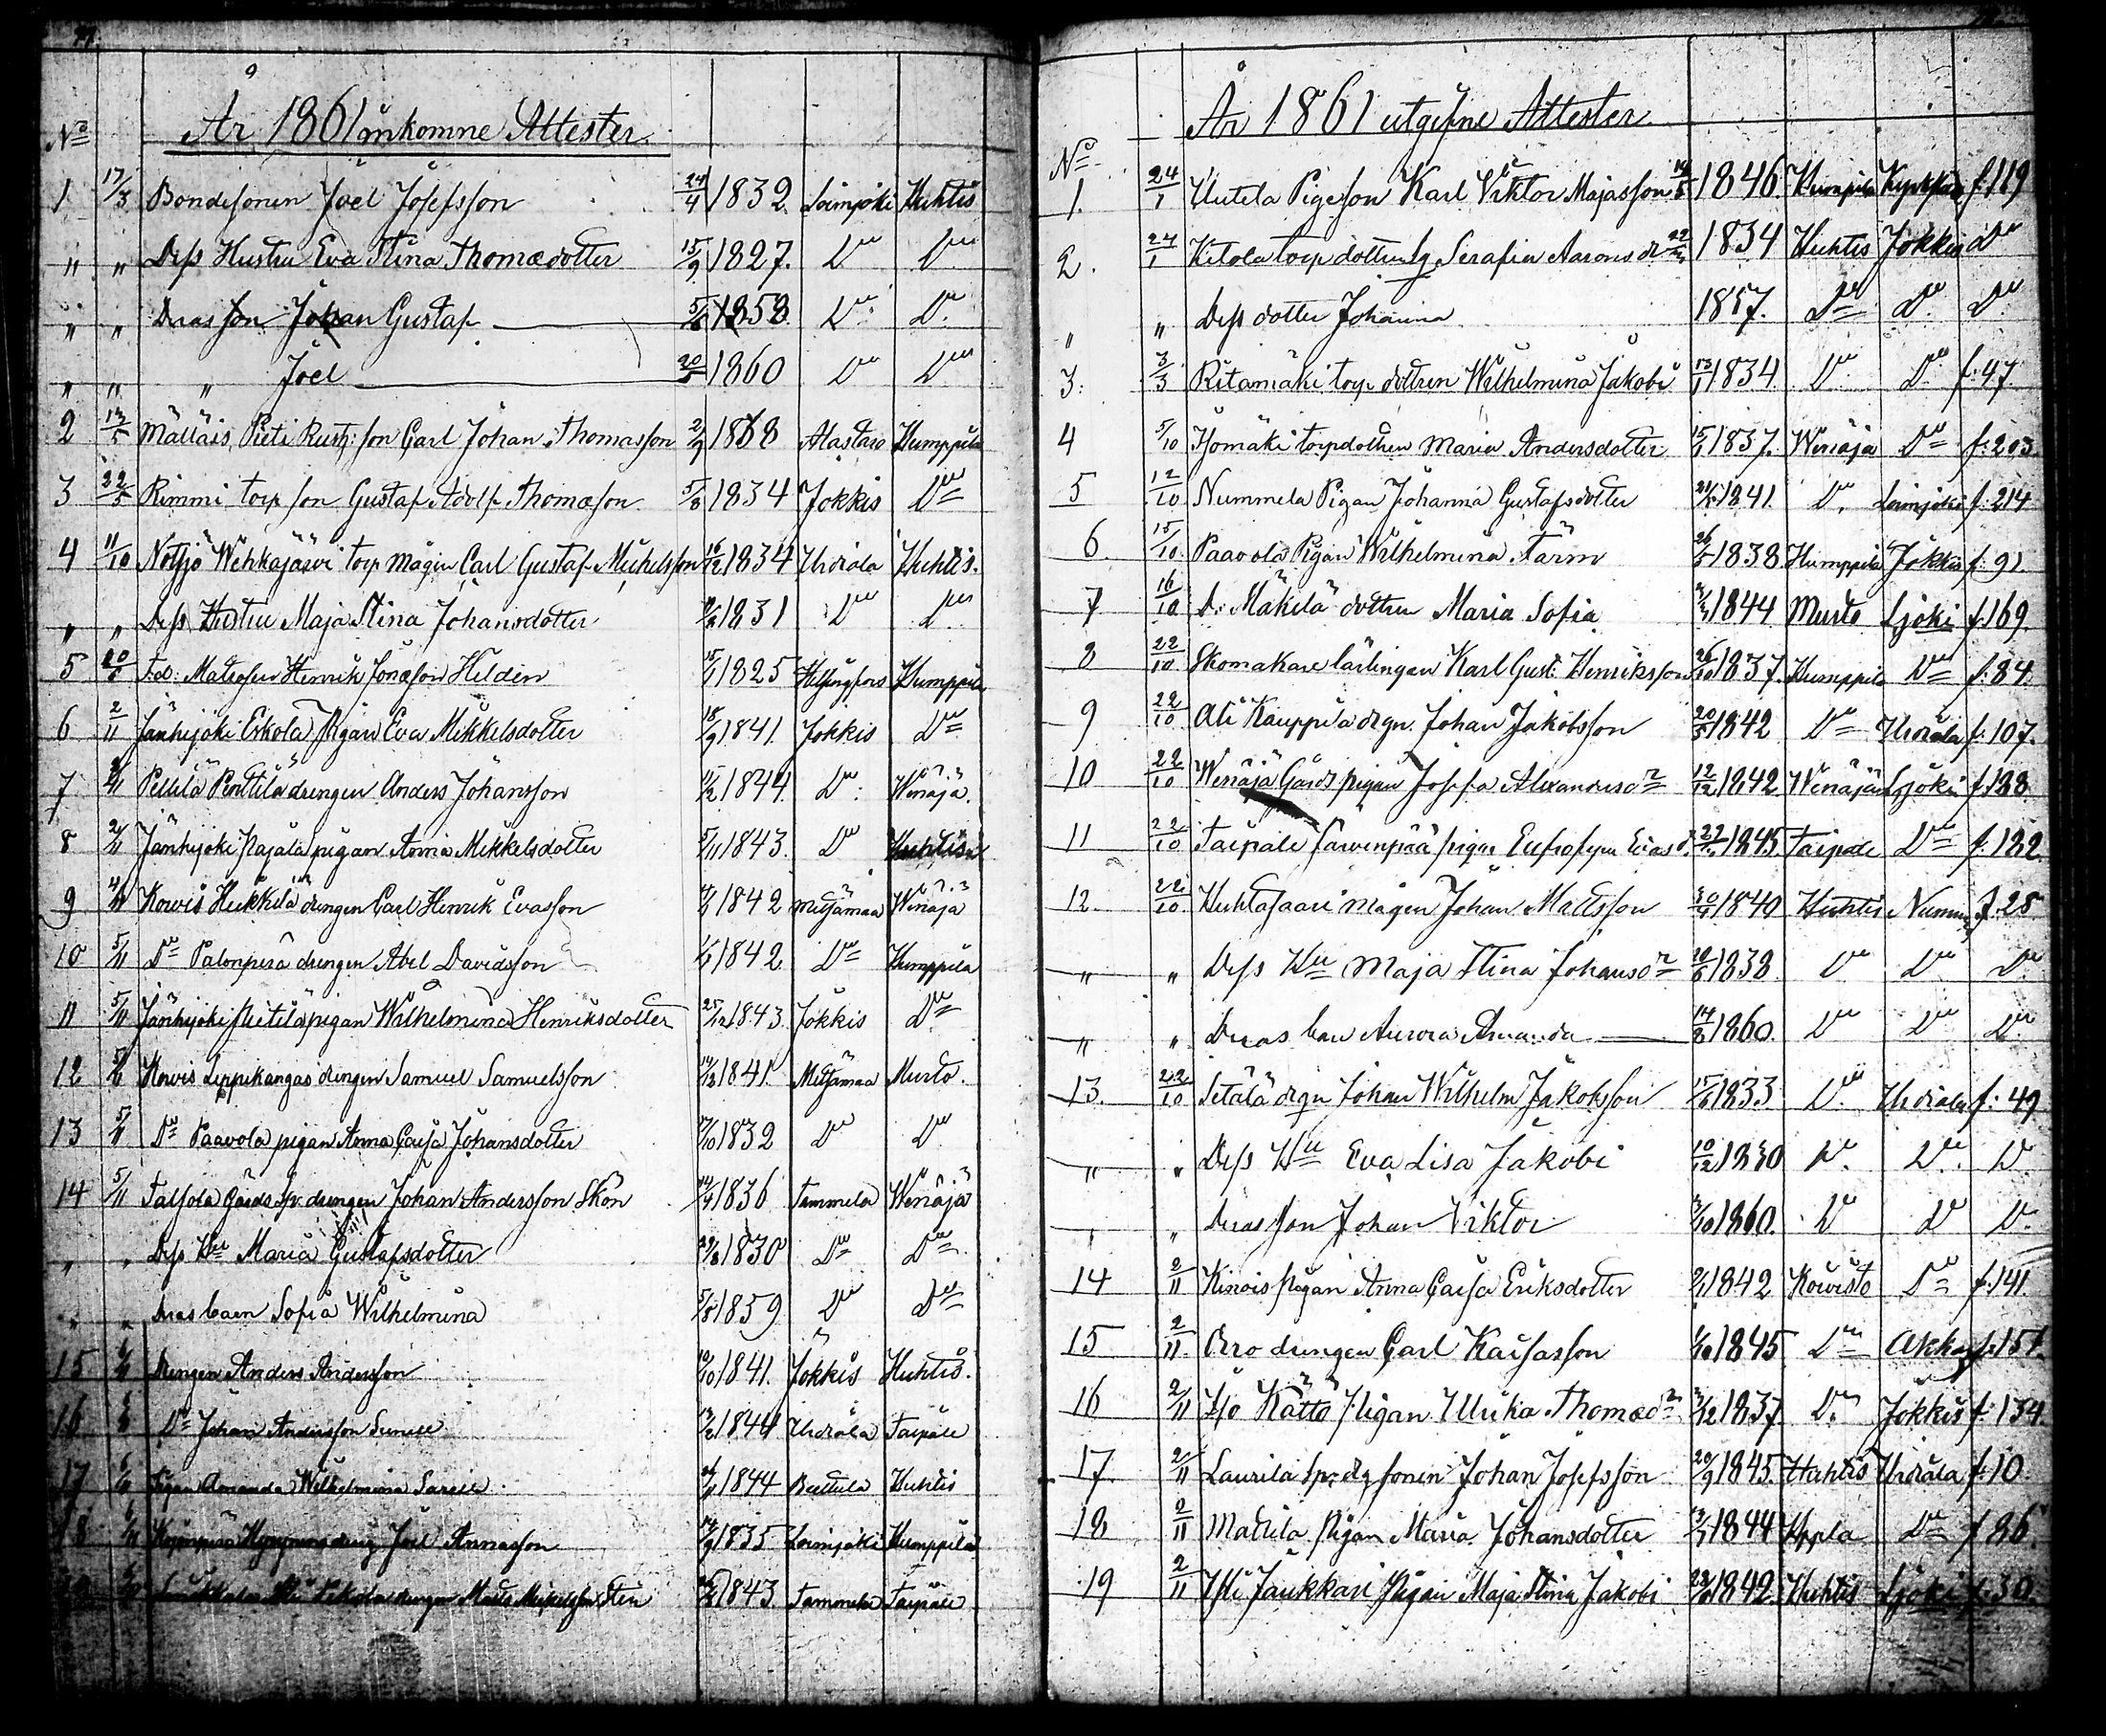 År 1861 inkomne Attester.
No
1 17/3 Bondesonen Joel Josefsson 24/4 1832. Loimjoki Huhtis
" " Dess Hustru Eva Stina Thomædotter 15/9 1827. Do Do
" " Deras son Johan Gustaf 1858. Do Do
" " " Joel 20/5 1860 Do Do
2 Mälläis, Pieti Rusth: son Carl Johan Thomasson Alastaro Humppila
3 22/5 Rimmi torp son Gustaf Adolf Thomasson 5/8 1834 Jokkis Do
4 11/10 Notsjö Wehkajärvi torp mågen Carl Gustaf Michelsson 16/12 1834 Urdiala Huhtis.
" " Dess Hustru Maja Stina Johansdotter 1831 Do Do
5 Matrosen Henrik Jonæson Helden 1825 Helsingfors Humppila
6 2/11 Jänhijoki Eskola Pigan Eva Mikkelsdotter 18/9 1841. Jokkis Do
7 Pellilä Penttilä drengen Anders Johansson 1844. Do Wenäjä.
8 2/11 Jänhijoki Rajala pigan Anna Mikkelsdotter 5/11 1843. Do Huhtis
9 Kowis Heikkilä drengen Carl Henrik Evasson 1842 Metsämaa Wenäjä
10 5/11 Do Palonperä drengen Abel Davidsson 1842 Do Humppila
11 5/11 Jänhijoki Pietilä pigan Wilhelmina Henriksdotter 25/12 1843. Jokkis Do
12 Kowis Leppikangas drengen Samuel Samuelsson 1841. Metsämaa Murto.
13 Do Paavola pigan Anna Caisa Johansdotter 1832 Do Do
14 5/11 Talsola Gårds Sp: drengen Johan Andersson Skön 1836 Tammela Wenäjä
" " Dess Hu Maria Gustafsdotter 1830 Do Do
" " Deras barn Sofia Wilhelmina 1859 Do Do
15 Drengen Anders Andersson 1841. Jokkis Huhtis.
16 Do Johan Andersson 1844 Urdiala Taipale
17 Pigan Amanda Wilhelmina 1844 Huhtis
18 Joel Annasson 1835 Loimjoki Humppila
19 drengen Matts 1843. Tammela Taipale
År 1861 utgifne Attester.
No
1. 24/1 Uutela Pigeson Karl Viktor Majasson 1846. Humpila f. 119
2. 24/1 Kitola torp dottren Serafia Aarons dr 1834 Huhtis Jokkis Do
" " Dess dotter Johanna 1857. Do Do Do
3. 3/3 Ritamäki torp dottren Wilhelmina Jakobi 13/1 1834 Do Do f. 47.
4 5/10 Isomäki torpdottren Maria Andersdotter 1837. Wenäjä Do f. 203.
5 12/10 Nummela Pigan Johanna Gustafsdotter 1841. Do. Loimjoki f. 214
6. 15/10. Paavola Pigan Wilhelmina Färm 1838. Humppila Jokkis f. 91
7 16/10 Mäkilä dottren Maria Sofia 1844 Murto Ljoki f. 169.
8 22/10. Skomakare lärlingen Karl Gust: Henriksson 26/10 1837. Humppila Do f. 84.
9 22/10 Ali Kauppila drgn. Johan Jakobsson 1842 Do Urdiala f. 107.
10 22/10 Wenäjä Gårds pigan Josefa Alexandersdr 12/12 1842 Wenäjä Ljoki f. 188.
11 22/10 Taipale Järvenpää pigan Eufrosyna 1845. Taipale Do f. 182.
12. 22/10. Huhtasaari mågen Johan Mattsson 1840 Huhtis f. 28
" " Dess Hu Maja Stina Johansdr 1838 Do Do Do
" " Deras barn Aurora Amanda 1860. Do Do Do
13. 22/10 Setälä drgn Johan Wilhelm Jakobsson 1833 Do Urdiala f. 49
" " Dess Hu Eva Lisa Jakobi 10/12 1830 Do. Do. Do
" " Deras son Johan Viktor 1860. Do Do Do.
14 2/11 pigan Anna Caisa Eriksdotter 1842 Koivisto Do f. 141.
15 2/11. Orro drengen Carl Kaisasson 1845 Do Akka f. 151.
16 2/11 Iso Kättö Pigan Ulrika Thomædr 1837. Do. Jokkis f. 134.
17. 2/11 Laurila sp: drg sonen Johan Josefsson 20/9 1845. Huhtis Urdiala f. 10.
18 2/11 Mattila Pigan Maria Johansdotter 1844 Hppla Do f. 86.
19 2/11 Yli Jaukkari Pigan Maja Stina Jakobi 1842. Huhtis Ljoki f. 30.